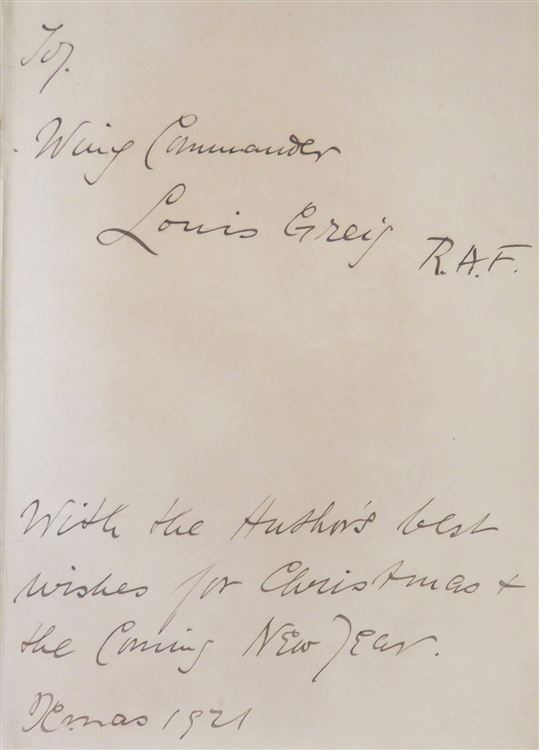 To,
Wing Commander
Louis Greig
R.A.F.
With the Author's best
wishes for Christmas +
the Coming New Year.
Xmas 1921